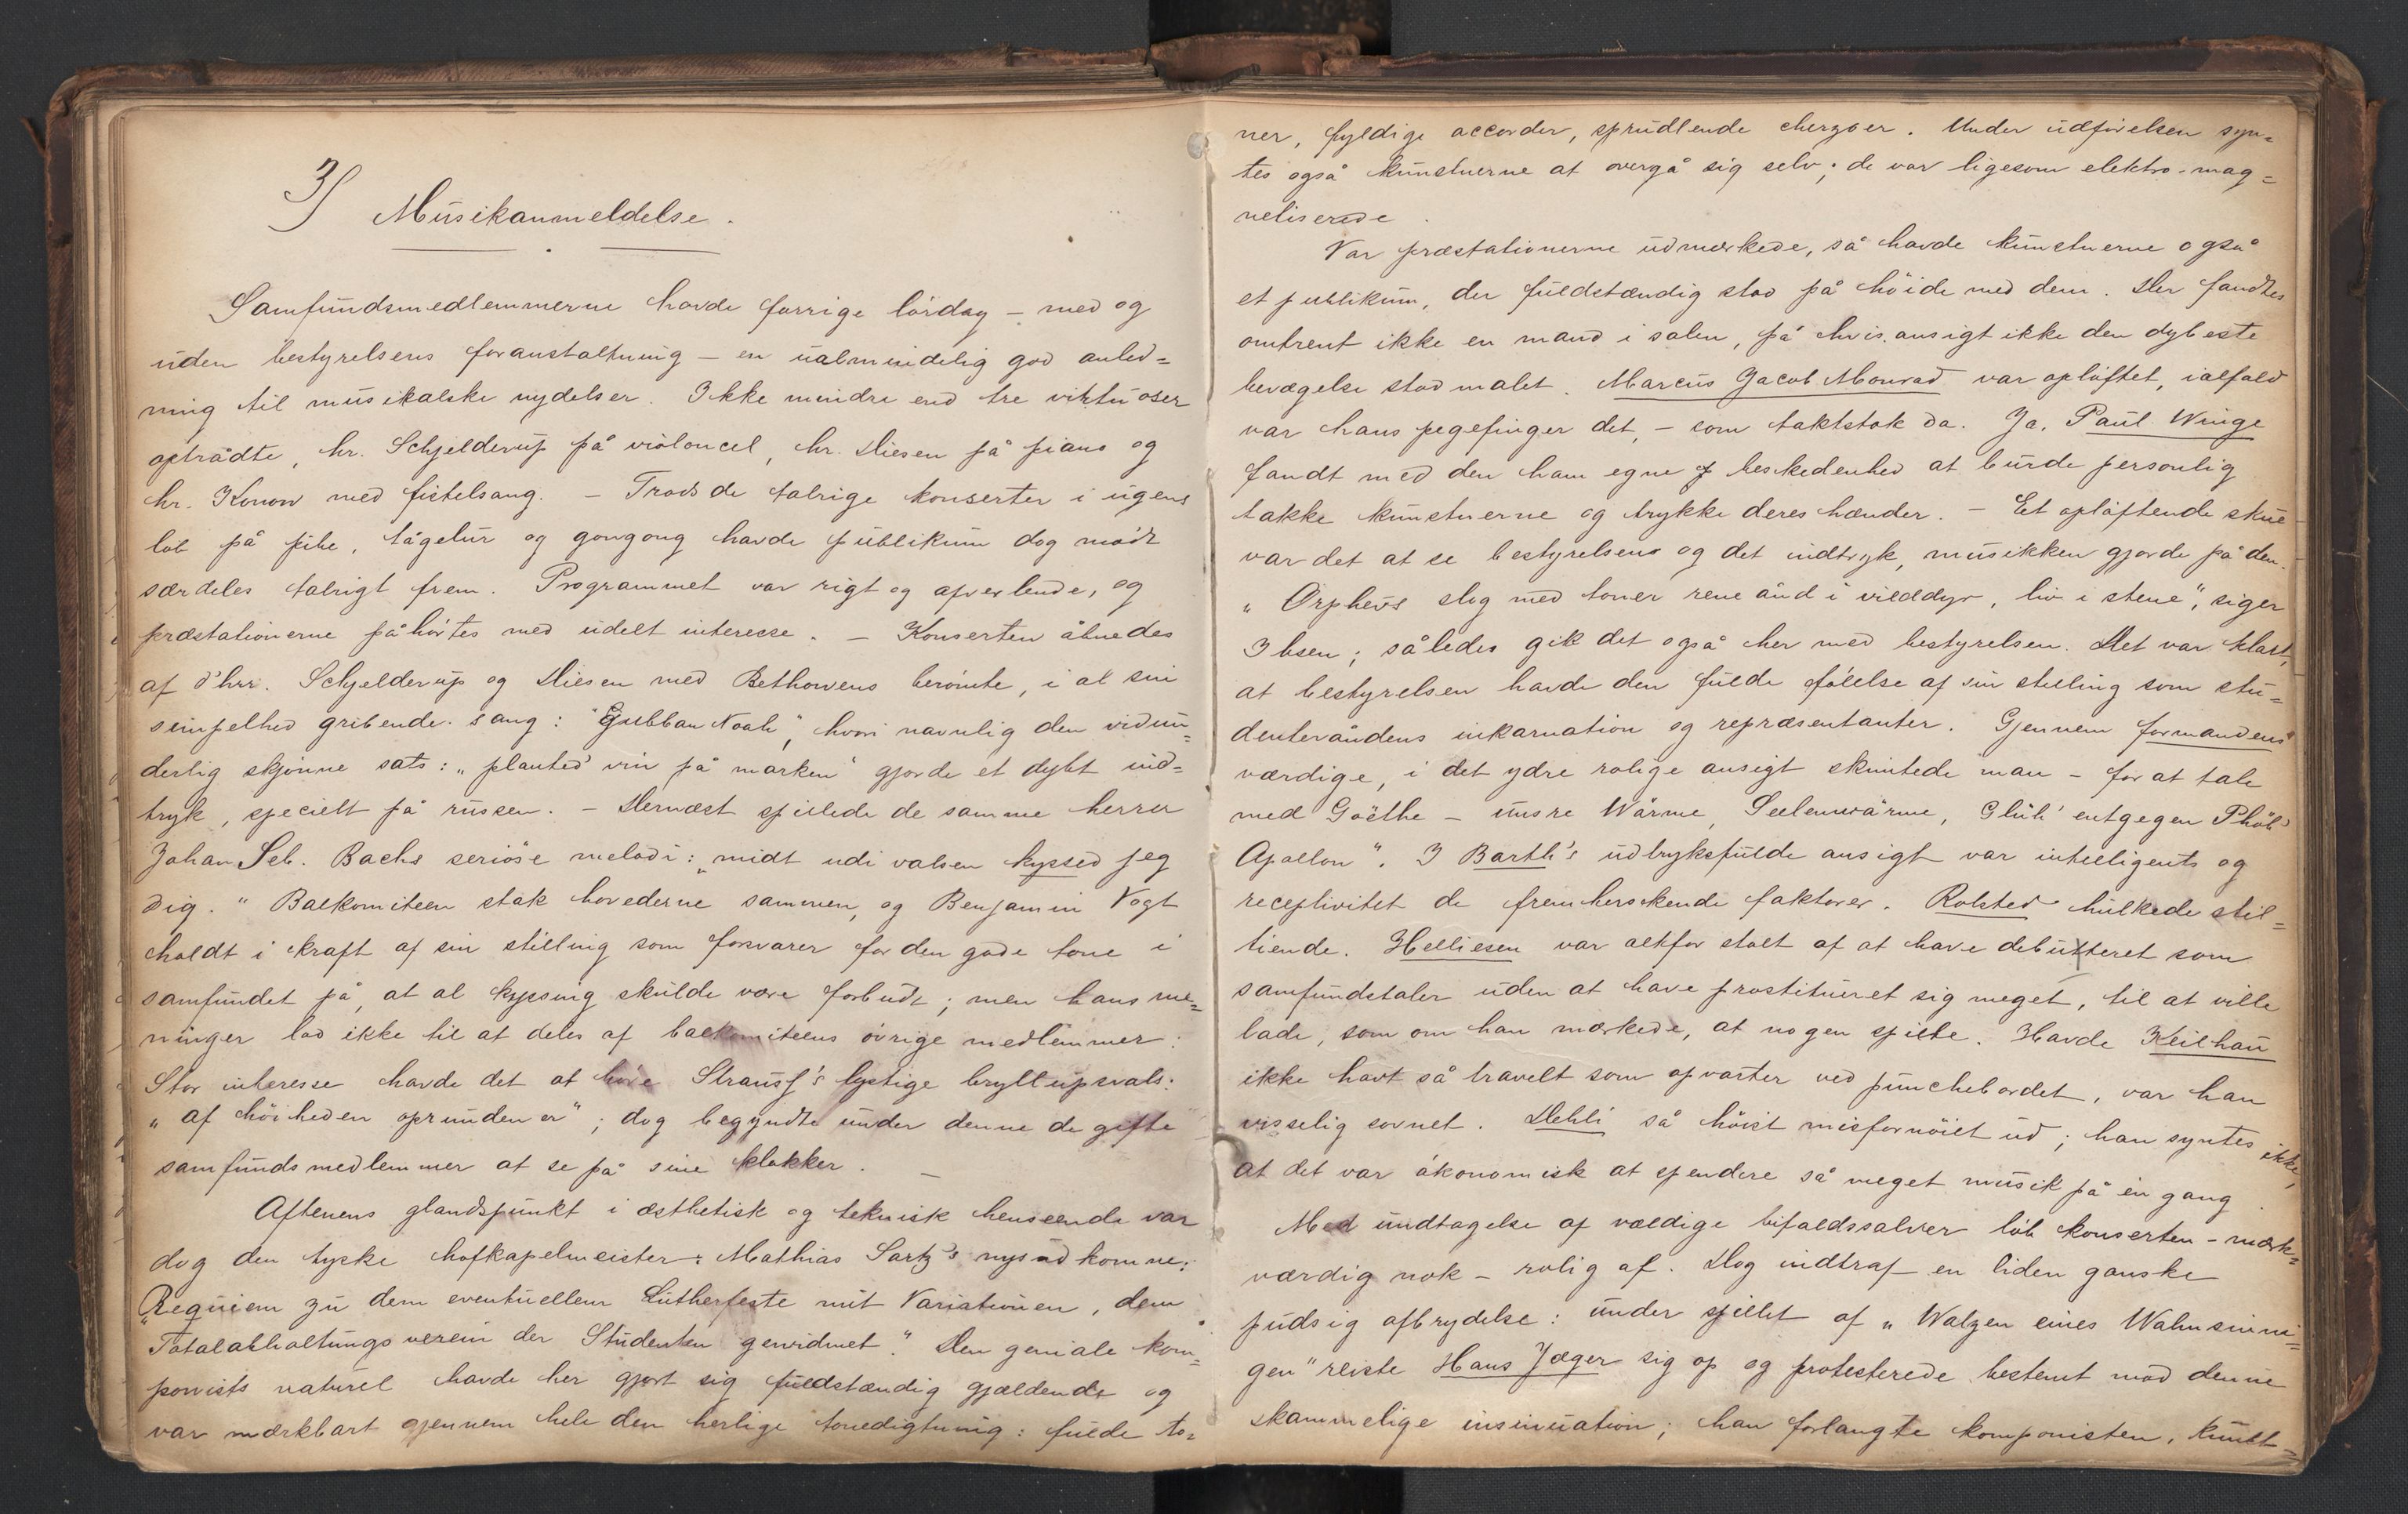 3/ Musikanmeldelse.
Samfundsmedlemmerne havde forrige lördag – med og
uden bestyrelsens foranstaltning – en ualmindelig god anled=
ning til musikalske nydelser. Ikke mindre end tre virtuoser
optrådte, hr. Schjelderup på violoncel, hr. Diesen på piano og
hr. Konow med fistelsang. – Trods de talrige konserter i ugens
löb på pibe, tågelur og gongong havde publikum dog mödt
særdeles talrigt frem. Programmet var rigt og afvexlende, og
præstationerne påhörtes med udelt interesse. – Konserten åbnedes
af d'hrr. Schjelderup og Diesen med Bethowens berömte, i al sin
simpelhed gribende sang: "Gubban Noah", hvori navnlig den vidun=
derlig skjönne sats: „planted' vin på marken" gjorde et dybt ind=
tryk, specielt på russen. – Dernæst spillede de samme herrer
Johan Seb. Bachs seriöse melodi: „midt udi valsen kyssed jeg
dig." Balkomiteen stak hovederne sammen, og Benjamin Vogt
holdt i kraft af sin stilling som forsvarer for den gode tone i
samfundet på, at al kyssing skulde være forbudt; men hans me=
ninger lod ikke til at deles af balkomiteens övrige medlemmer.
Stor interesse havde det at höre Strausz's lystige bryllupsvals:
„af höiheden oprunden er"; dog begyndte under denne de gifte
samfundsmedlemmer at se på sine klokker. –
Aftenens glandspunkt i æsthetisk og teknisk henseende var
dog den tyske hofkapelmeister: Mathias Sartz's nysudkomne:
„Requiem zu dem eventuellem Lutherfeste mit Variationen, dem
Totalabhaltungsverein der Studenten gewidmet." Den geniale kom=
ponists naturel havde her gjort sig fuldstændig gjældende og
var mærkbart gjennem hele den herlige tonedigtning: fulde to=
ner, fyldige accorder, sprudlende scherzoer. Under udförelsen syn=
tes også kunstnerne at overgå sig selv; de var ligesom elektro-mag=
netiserede.
Var præstationerne udmærkede, så havde kunstnerne også
et publikum, der fuldstændig stod på höide med dem. Der fandtes
omtrent ikke en mand i salen, på hvis ansigt ikke den dybeste
bevægelse stod malet. Marcus Jacob Monrad var oplöftet, ialfald
var hans pegefinger det, – som taktstok da. Ja, Paul Winge
fandt med den ham egne beskedenhed at burde personlig
takke kunstnerne og trykke deres hænder. – Et oplöftende skue
var det at se bestyrelsens og det indtryk, musikken gjorde på den.
„Orphevs slog med toner rene ånd i vilddyr, liv i stene", siger
Ibsen; således gik det også her med bestyrelsen. Det var klart,
at bestyrelsen havde den fulde fölelse af sin stilling som stu=
denteråndens inkarnation og repræsentanter. Gjennem formandens
værdige, i det ydre rolige ansigt skimtede man – for at tale
med Goëthe – unsre Wärme, Seelenwärme, Glüh' entgegen Phöb'
Apollon". I Barth's udtryksfulde ansigt var intelligents og
receptivitet de fremherskende faktorer. Rolsted hulkede stil=
tiende. Helliesen var altfor stolt af at have debutteret som
samfundstaler uden at have prostitueret sig meget, til at ville
lade, som om han mærkede, at nogen spilte. Havde Keilhau
ikke havt så travelt som opvarter ved punchebordet, var han
visselig sovnet. Dehli så höist misfornöiet ud; han syntes ikke,
at det var ökonomisk at spendere så meget musik på én gang.
Med undtagelse af vældige bifaldssalver löb konserten – mærk=
værdig nok – rolig af. Dog indtraf en liden ganske
pudsig afbrydelse: under spillet af „Walzen eines Wahnsinni=
gen" reiste Hans Jæger sig op og protesterede bestemt mod denne
skammelige insinuation; han forlangte komponisten, Knutt=